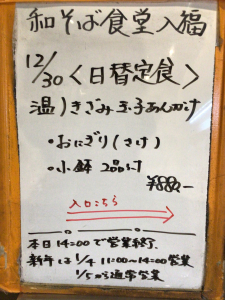 和そば食堂入福
12/30 〈日替定食〉
温)きざみ玉子あんかけ
・おにぎり(さけ)
・小鉢 2品付
¥880-
入口こちら
本日14:00で営業終了.
新年は1/4 11:00〜14:00営業
1/5から通常営業